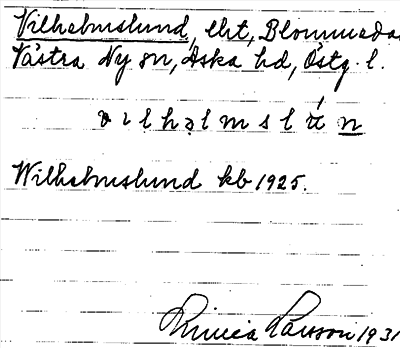 Vilhelmslund, lht, Blommeda
Västra Ny sn, Aska hd, Östg. l.
vılhəlmslún
Wilhelmslund kb 1925.
Larsson 1931